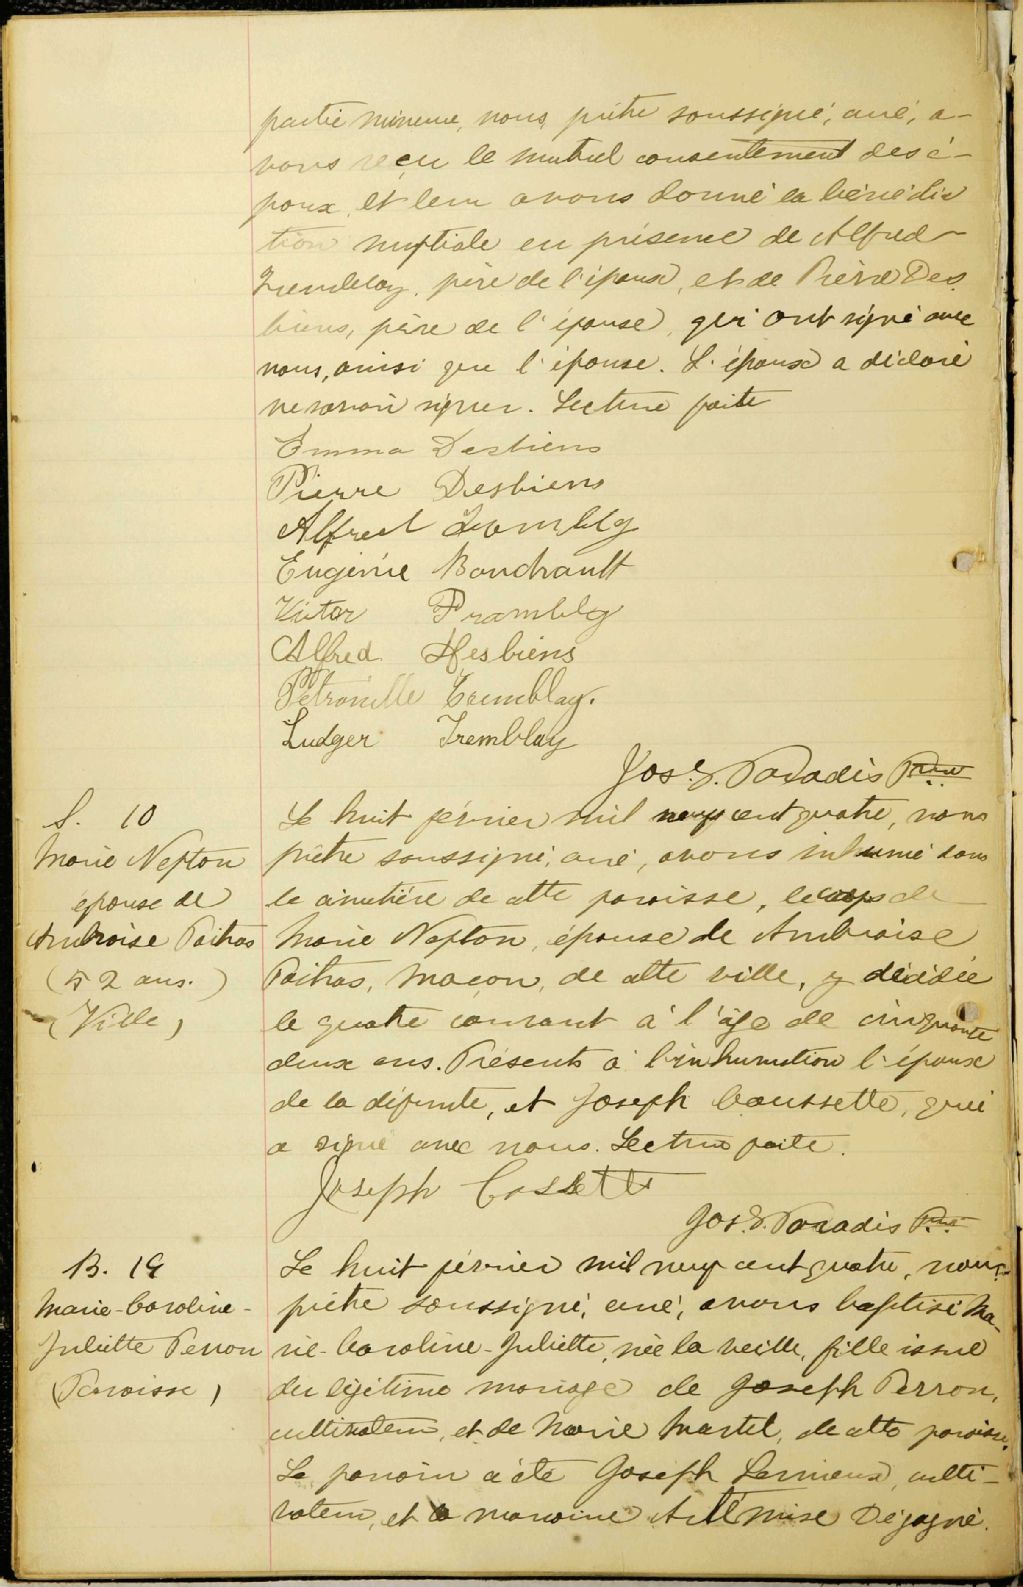 partie mineure, nous, prêtre soussigné, curé, a-
vons reçu le mutuel consentement des é-
poux et leur avons donné la bénédic
tion nuptiale en présence de Alfred
Tremblay, père de l'époux, et de Pierre Des
biens, père de l'épouse, qui ont signé avec
nous, ainsi que l'épouse. L'époux a déclaré
ne savoir signer. Lecture faite
Emma Desbiens
Pierre Desbiens
Alfred Trambly
Eugénie Boudrault
Victor Prambly
Alfred Desbiens
Pétronille Tremblay.
Ludger Tremblay
Jos. D. Paradis Ptre
S. 10
Marie Nepton
épouse de
Ambroise Poitras
(52 ans.)
(Ville)
Le huit février mil neuf cent quatre, nous
prêtre soussigné, curé, avons inhumé dans
le cimetière de cette paroisse, le corps de
Marie Nepton, épouse de Ambroise
Poitras, maçon, de cette ville, y décédée
le quatre courant à l'âge de cinquante
deux ans. Présents à l'inhumation l'époux
de la défunte, et Joseph Coussette, qui
a signé avec nous. Lecture faite.
Joseph Cossette
Jos. D. Paradis Ptre
B. 19
Marie-Caroline-
Juliette Perron
(Paroisse)
Le huit février mil neuf cent quatre, nous
prêtre soussigné, curé, avons baptisé Ma-
rie-Caroline-Juliette, née la veille, fille issue
du légitime mariage de Joseph Perron,
cultivateur, et de Marie Martel, de cette paroisse.
Le parrain a été Joseph Lemieux, culti-
vateur, et la marraine Artémise Dégagné.